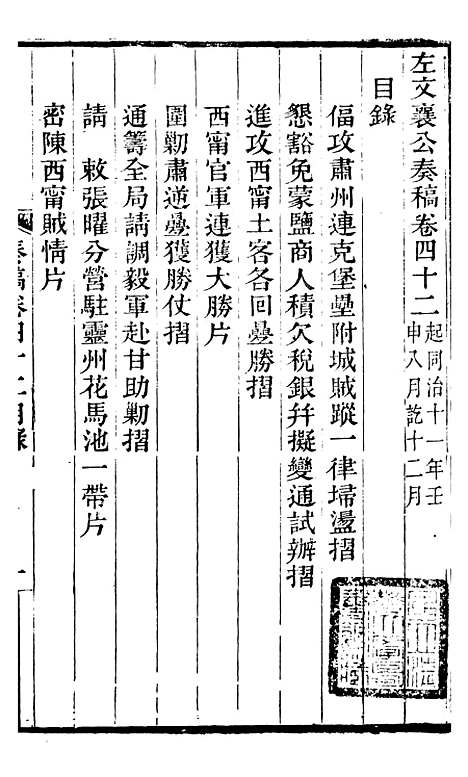 左文襄公奏稿卷四十二 起同治十一年壬申八月訖十二月
目錄
偪攻肅州連克堡壘附城賊蹤一律埽盪摺
懇豁免蒙鹽商人積欠稅銀幷擬變通試辦摺
進攻西甯土客各回疊勝摺
西甯官軍連獲大勝片
圍勦肅逆疊獲勝仗摺
通籌全局請調毅軍赴甘助勦摺
請 敕張曜分營駐靈州花馬池一帶片
密陳西甯賊情片
奏稿卷四十二目錄 一